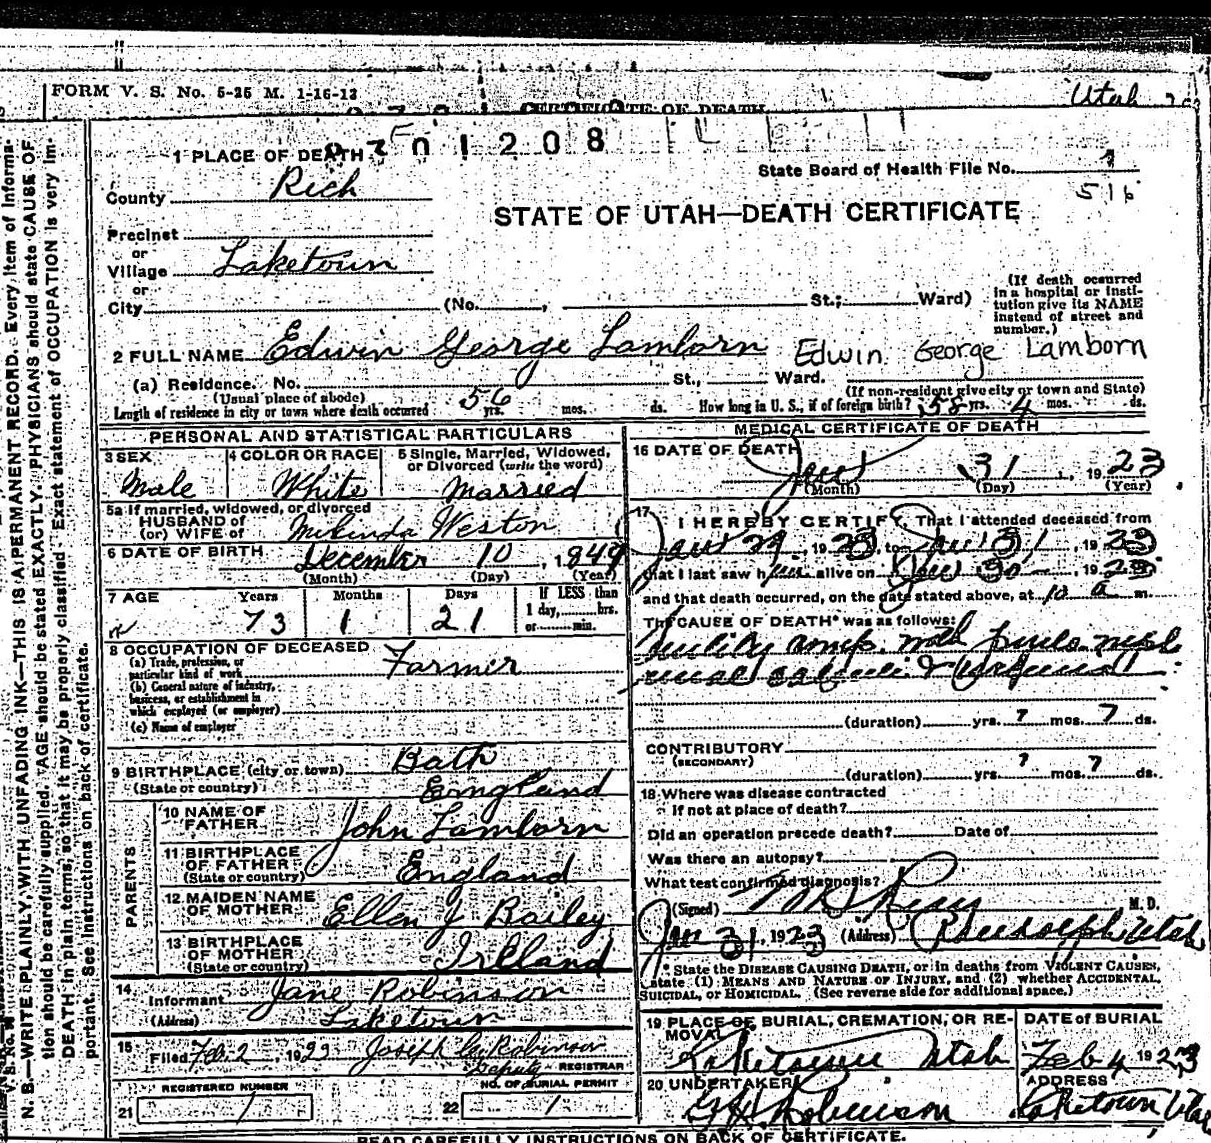 FORM V. S. No. 5-25 M. 1-15-13
CERTIFICATE OF DEATH
Utah
01208
1 PLACE OF DEATH
State Board of Health File No. 1
516
County Rich
STATE OF UTAH—DEATH CERTIFICATE
Precinct
or
Village Laketown
or
City (No. , St.; Ward)
(If death occurred in a hospital or institution give its NAME instead of street and number.)
2 FULL NAME Edwin George Lamborn Edwin George Lamborn
(a) Residence. No. St., Ward.
(Usual place of abode) (If non-resident give city or town and State)
Length of residence in city or town where death occurred 56 yrs. mos. ds. How long in U. S., if of foreign birth? 58 yrs. 4 mos. ds.
PERSONAL AND STATISTICAL PARTICULARS
3 SEX
Male
4 COLOR OR RACE
White
5 Single, Married, Widowed, or Divorced (write the word)
Married
5a If married, widowed, or divorced
HUSBAND of
(or) WIFE of Melinda Weston
6 DATE OF BIRTH December 10, 1849
(Month) (Day) (Year)
7 AGE Years Months Days If LESS than
73 1 21 1 day, hrs.
or min.
8 OCCUPATION OF DECEASED
(a) Trade, profession, or particular kind of work Farmer
(b) General nature of industry, business, or establishment in which employed (or employer)
(c) Name of employer
9 BIRTHPLACE (city or town) Bath
(State or country) England
PARENTS
10 NAME OF FATHER John Lamborn
11 BIRTHPLACE OF FATHER (State or country) England
12 MAIDEN NAME OF MOTHER Ellen J Bailey
13 BIRTHPLACE OF MOTHER (State or country) Ireland
14
Informant Jane Robinson
(Address) Laketown
15
Filed Feb. 2, 1923 Joseph Robinson
Deputy REGISTRAR
REGISTERED NUMBER NO. OF BURIAL PERMIT
21 1 22 1
MEDICAL CERTIFICATE OF DEATH
16 DATE OF DEATH
Jan 31, 1923
(Month) (Day) (Year)
17
I HEREBY CERTIFY, That I attended deceased from
Jan 29, 1923, to Jan 31, 1923
that I last saw him alive on Jan 30, 1923
and that death occurred, on the date stated above, at 10 a m.
The CAUSE OF DEATH* was as follows:
(duration) yrs. ? mos. 7 ds.
CONTRIBUTORY
(SECONDARY)
(duration) yrs. ? mos. 7 ds.
18 Where was disease contracted
If not at place of death?
Did an operation precede death? Date of
Was there an autopsy?
What test confirmed diagnosis?
(Signed) M. D.
Jan 31, 1923 (Address) Randolph Utah
* State the DISEASE CAUSING DEATH, or in deaths from VIOLENT CAUSES,
state (1) MEANS AND NATURE OF INJURY, and (2) whether ACCIDENTAL,
SUICIDAL, or HOMICIDAL. (See reverse side for additional space.)
19 PLACE OF BURIAL, CREMATION, OR REMOVAL
Laketown Utah
DATE of BURIAL
Feb 4 1923
20 UNDERTAKER
Robinson
ADDRESS
Laketown Utah
READ CAREFULLY INSTRUCTIONS ON BACK OF CERTIFICATE.
N. B.—WRITE PLAINLY, WITH UNFADING INK—THIS IS A PERMANENT RECORD. Every item of information should be carefully supplied. AGE should be stated EXACTLY. PHYSICIANS should state CAUSE OF DEATH in plain terms, so that it may be properly classified. Exact statement of OCCUPATION is very important. See instructions on back of certificate.